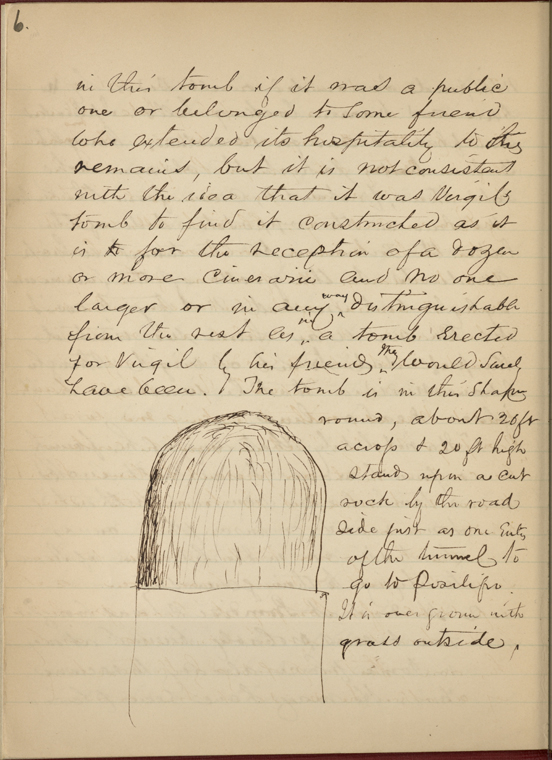 6.
in this tomb if it was a public
one or belonged to some friend
who extended its hospitality to his
remains, but it is not consistent
with the idea that it was Virgils
tomb to find it constructed as it
is for the reception of a dozen
or more cinerarii and no one
larger or in any way distinguishable
from the rest as in a tomb erected
for Virgil by his friends they would surely
have been. The tomb is in this shape
round, about 20 ft
across & 20 ft high
stands upon a cut
rock by the road
side just as one enters
of the tunnel to
go to Posilipo.
It is overgrown with
grass outside.